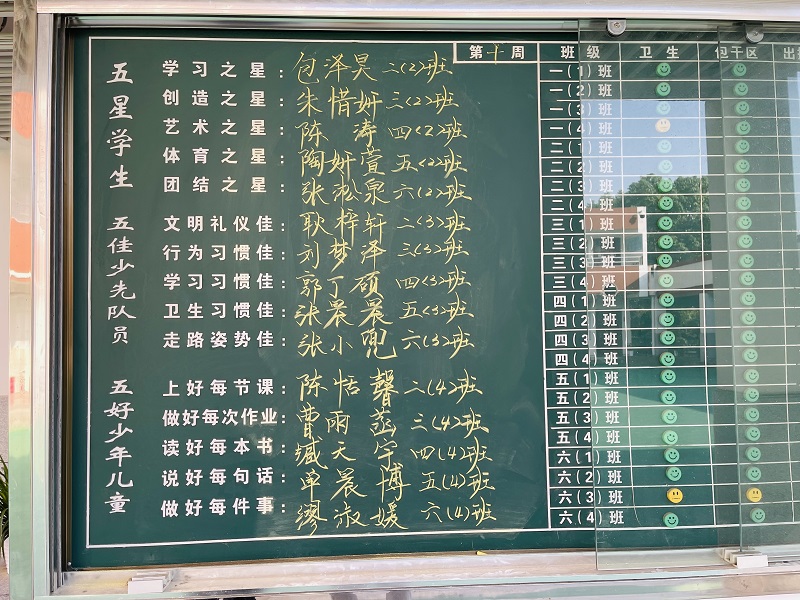 五星学生
学习之星：包泽昊 二(2)班
创造之星：朱惜妍 三(2)班
艺术之星：陈涛 四(2)班
体育之星：陶妍萱 五(2)班
团结之星：张淞泉 六(2)班
五佳少先队员
文明礼仪佳：耿梓轩 二(3)班
行为习惯佳：刘梦泽 三(3)班
学习习惯佳：郭丁硕 四(3)班
卫生习惯佳：张晨晨 五(3)班
走路姿势佳：张小兜 六(3)班
五好少年儿童
上好每节课：陈恬馨 二(4)班
做好每次作业：曹雨菡 三(4)班
读好每本书：臧天宇 四(4)班
说好每句话：单晨博 五(4)班
做好每件事：缪淑媛 六(4)班
第十周 班级 卫生 包干区 出
一(1)班
一(2)班
一(3)班
一(4)班
二(1)班
二(2)班
二(3)班
二(4)班
三(1)班
三(2)班
三(3)班
三(4)班
四(1)班
四(2)班
四(3)班
四(4)班
五(1)班
五(2)班
五(3)班
五(4)班
六(1)班
六(2)班
六(3)班
六(4)班